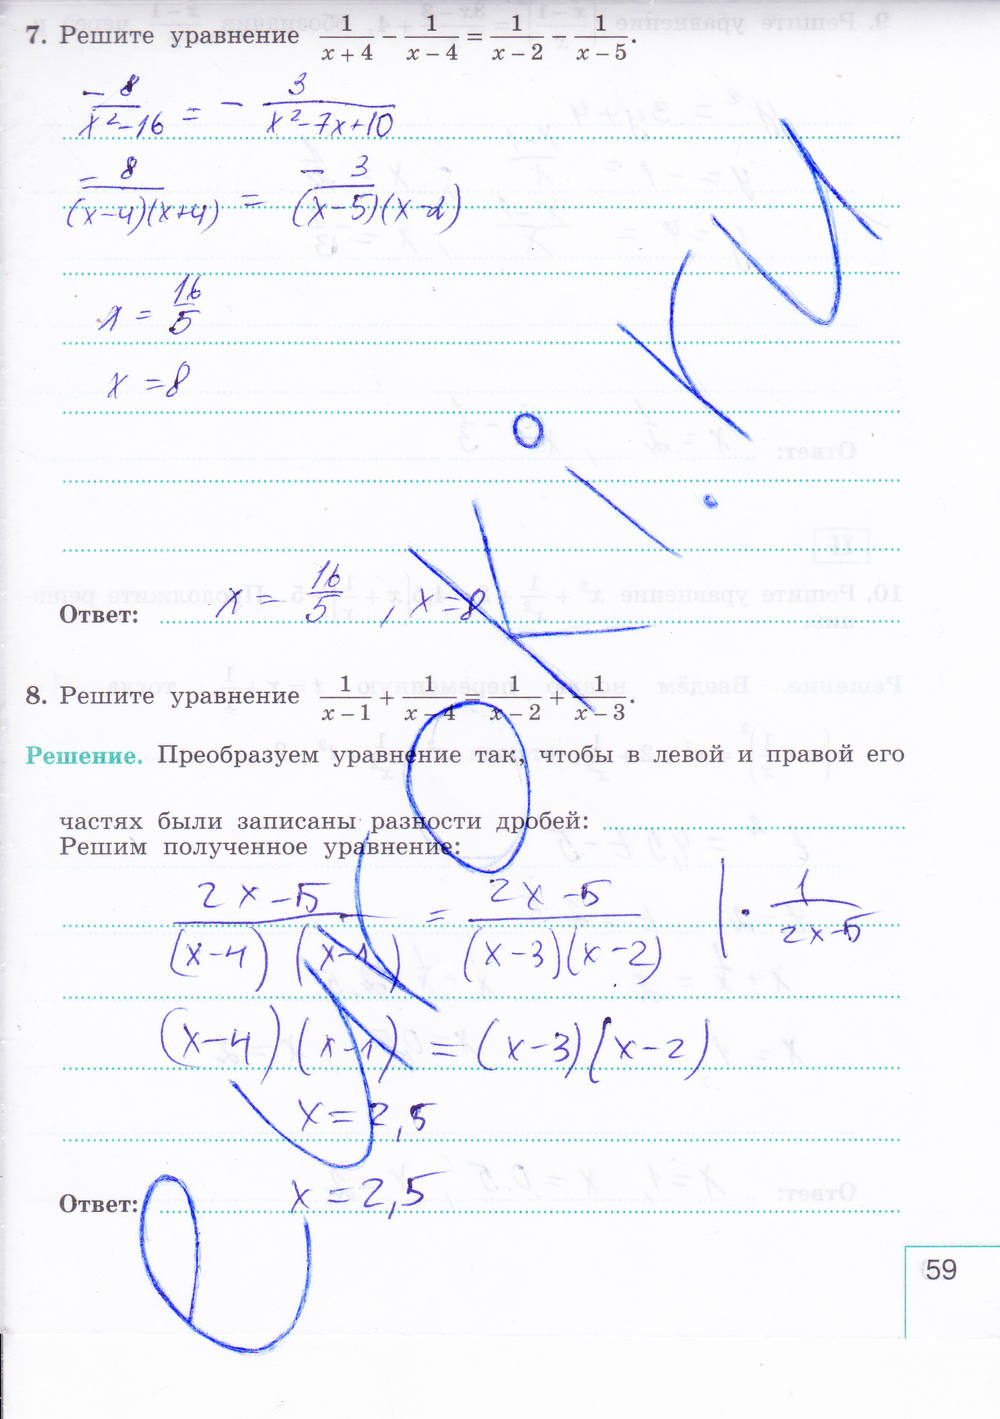 7. Решите уравнение 1/(x + 4) − 1/(x − 4) = 1/(x − 2) − 1/(x − 5).
−8/(x²−16) = − 3/(x²−7x+10)
−8/((x−4)(x+4)) = −3/((x−5)(x−2))
x = 16/5
x = 8
Ответ: x = 16/5 , x = 8
8. Решите уравнение 1/(x − 1) + 1/(x − 4) = 1/(x − 2) + 1/(x − 3).
Решение. Преобразуем уравнение так, чтобы в левой и правой его
частях были записаны разности дробей:
Решим полученное уравнение:
(2x−5)/((x−4)(x−1)) = (2x−5)/((x−3)(x−2)) | · 1/(2x−5)
(x−4)(x−1) = (x−3)(x−2)
x = 2,5
Ответ: x = 2,5
59